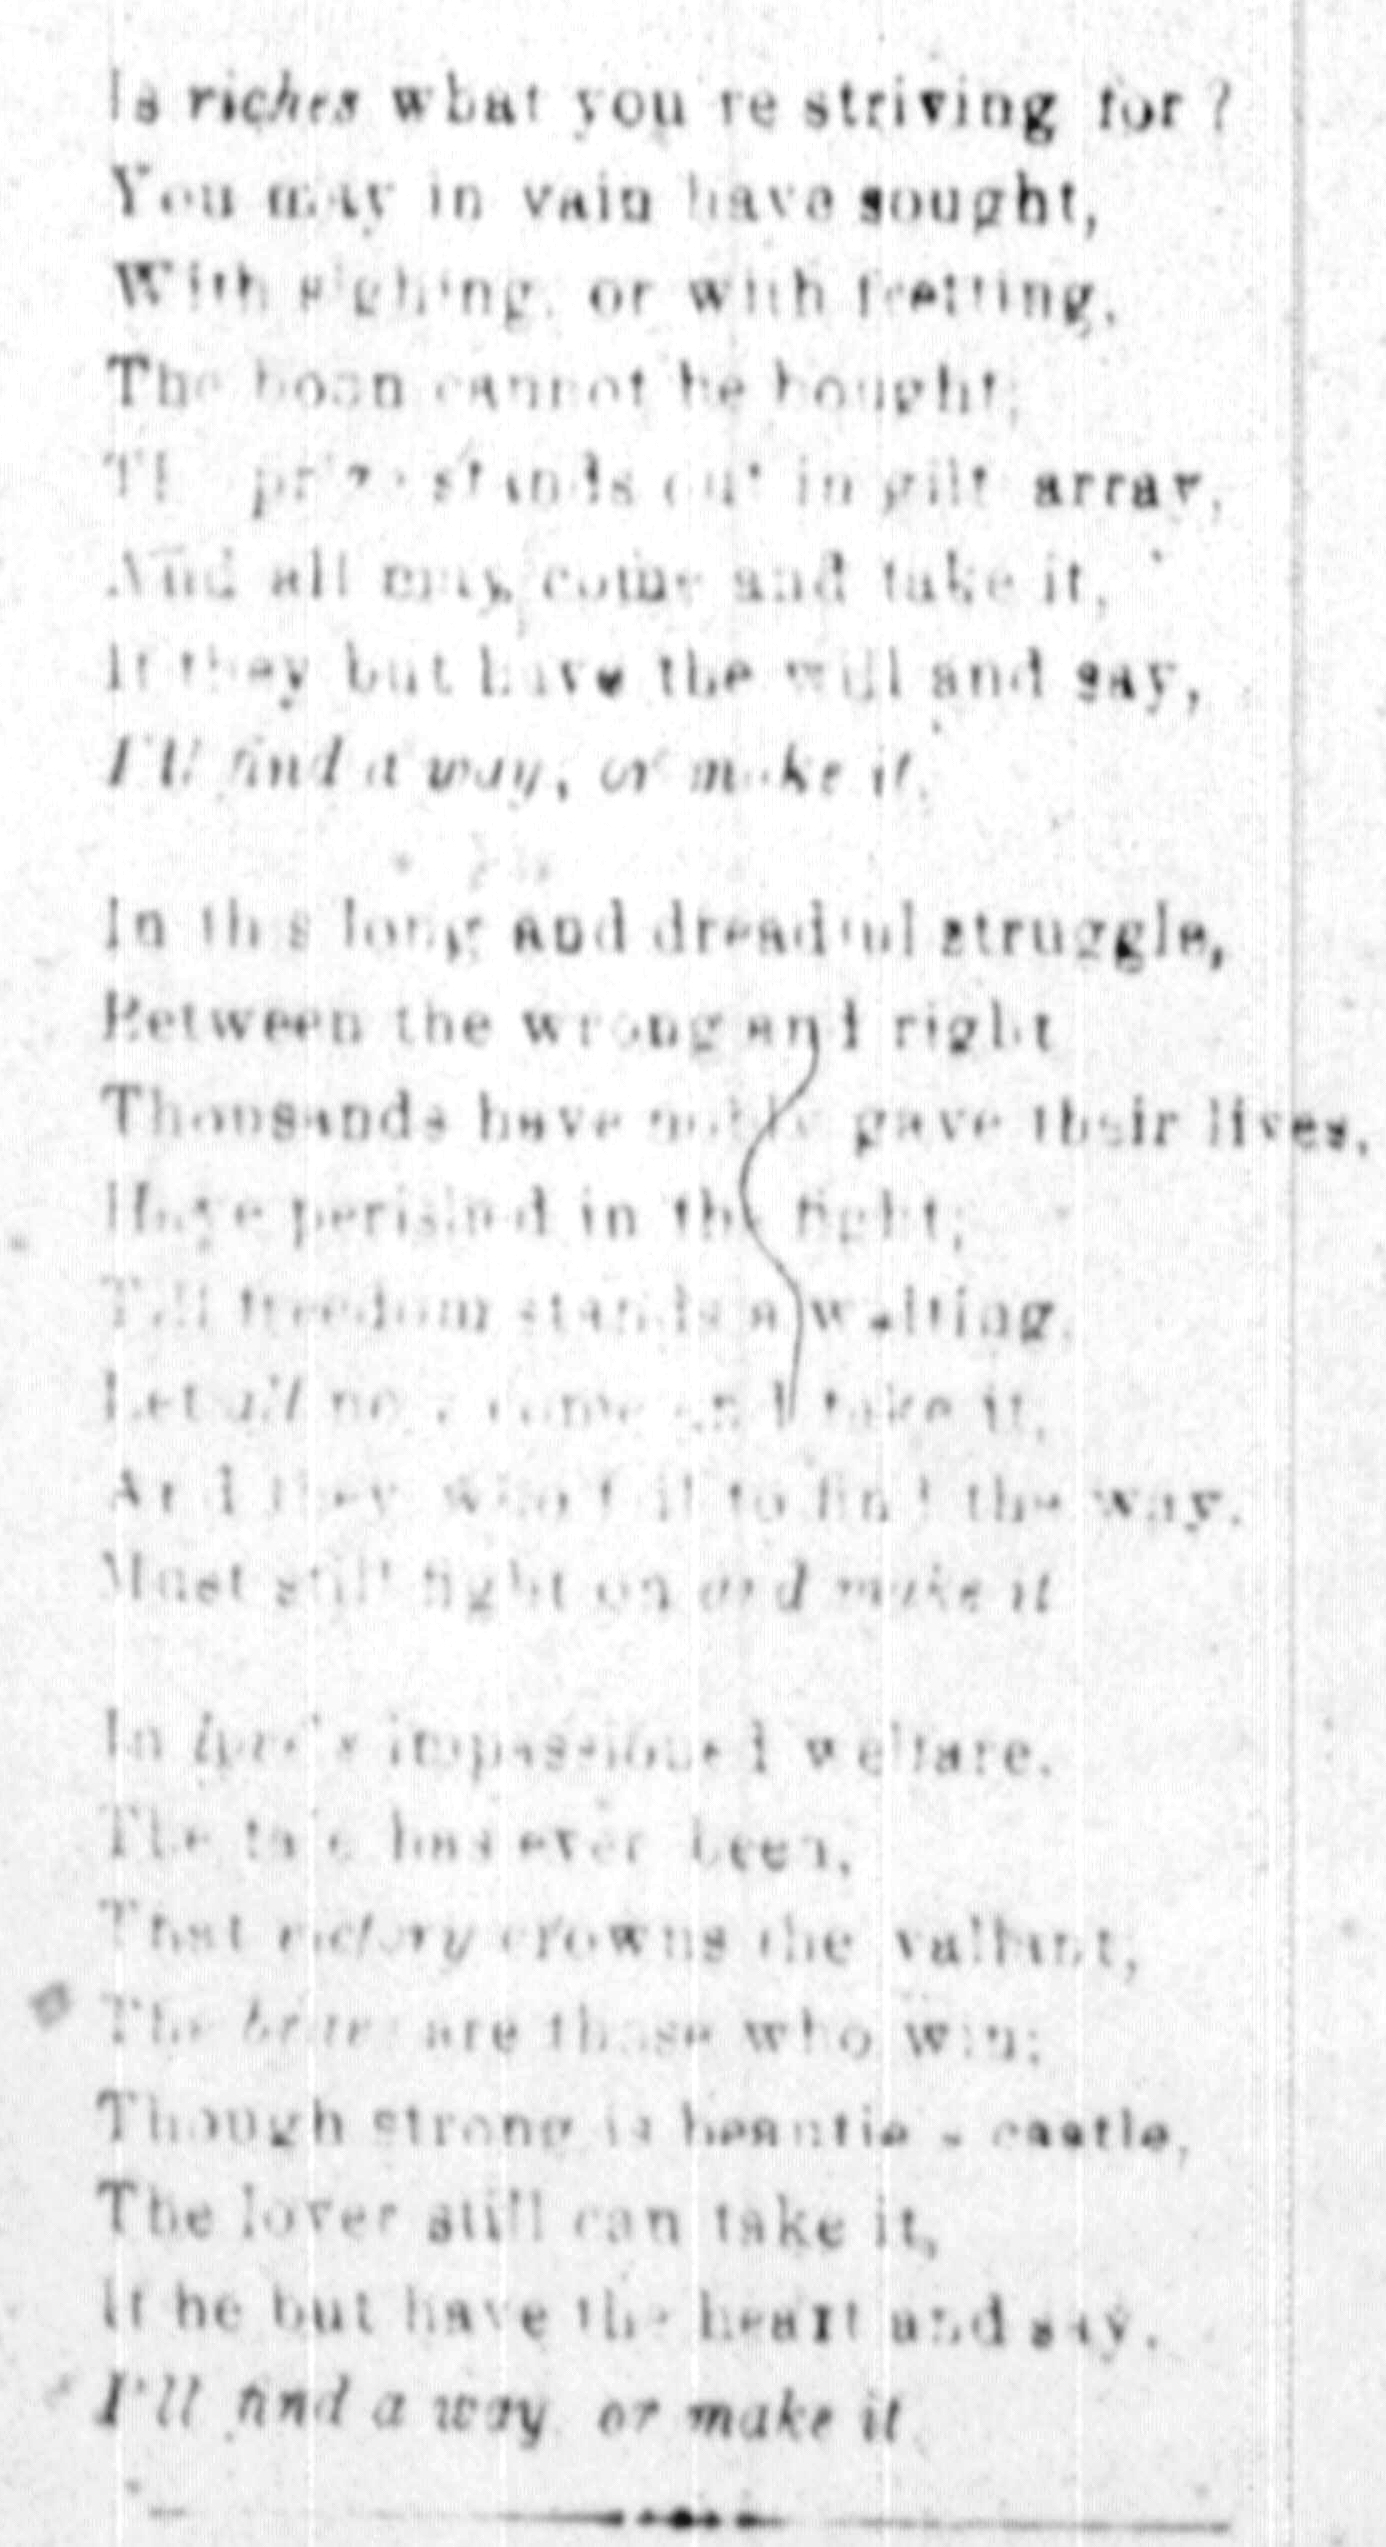 Is riches what you're striving for?
You may in vain have sought,
With sighing, or with fretting,
The boon cannot be bought;
The prize stands out in gilt array,
And all may come and take it,
If they but have the will and say,
I'll find a way, or make it.
In this long and dreadful struggle,
Between the wrong and right
Thousands have nobly gave their lives,
Have perished in the fight;
Till freedom stands a waiting,
Let all now come and take it,
And they who fail to find the way,
Must still fight on and make it
In impassioned welfare,
The tale has ever been,
That victory crowns the valiant,
The brave are those who win;
Though strong is beautie's castle,
The lover still can take it,
If he but have the heart and say,
I'll find a way or make it